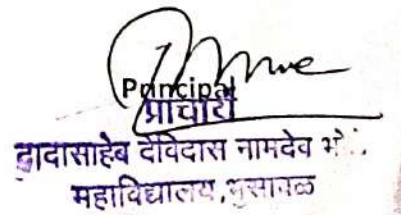 Principal
प्राचार्य
दादासाहेब देविदास नामदेव भोळे
महाविद्यालय, भुसावळ